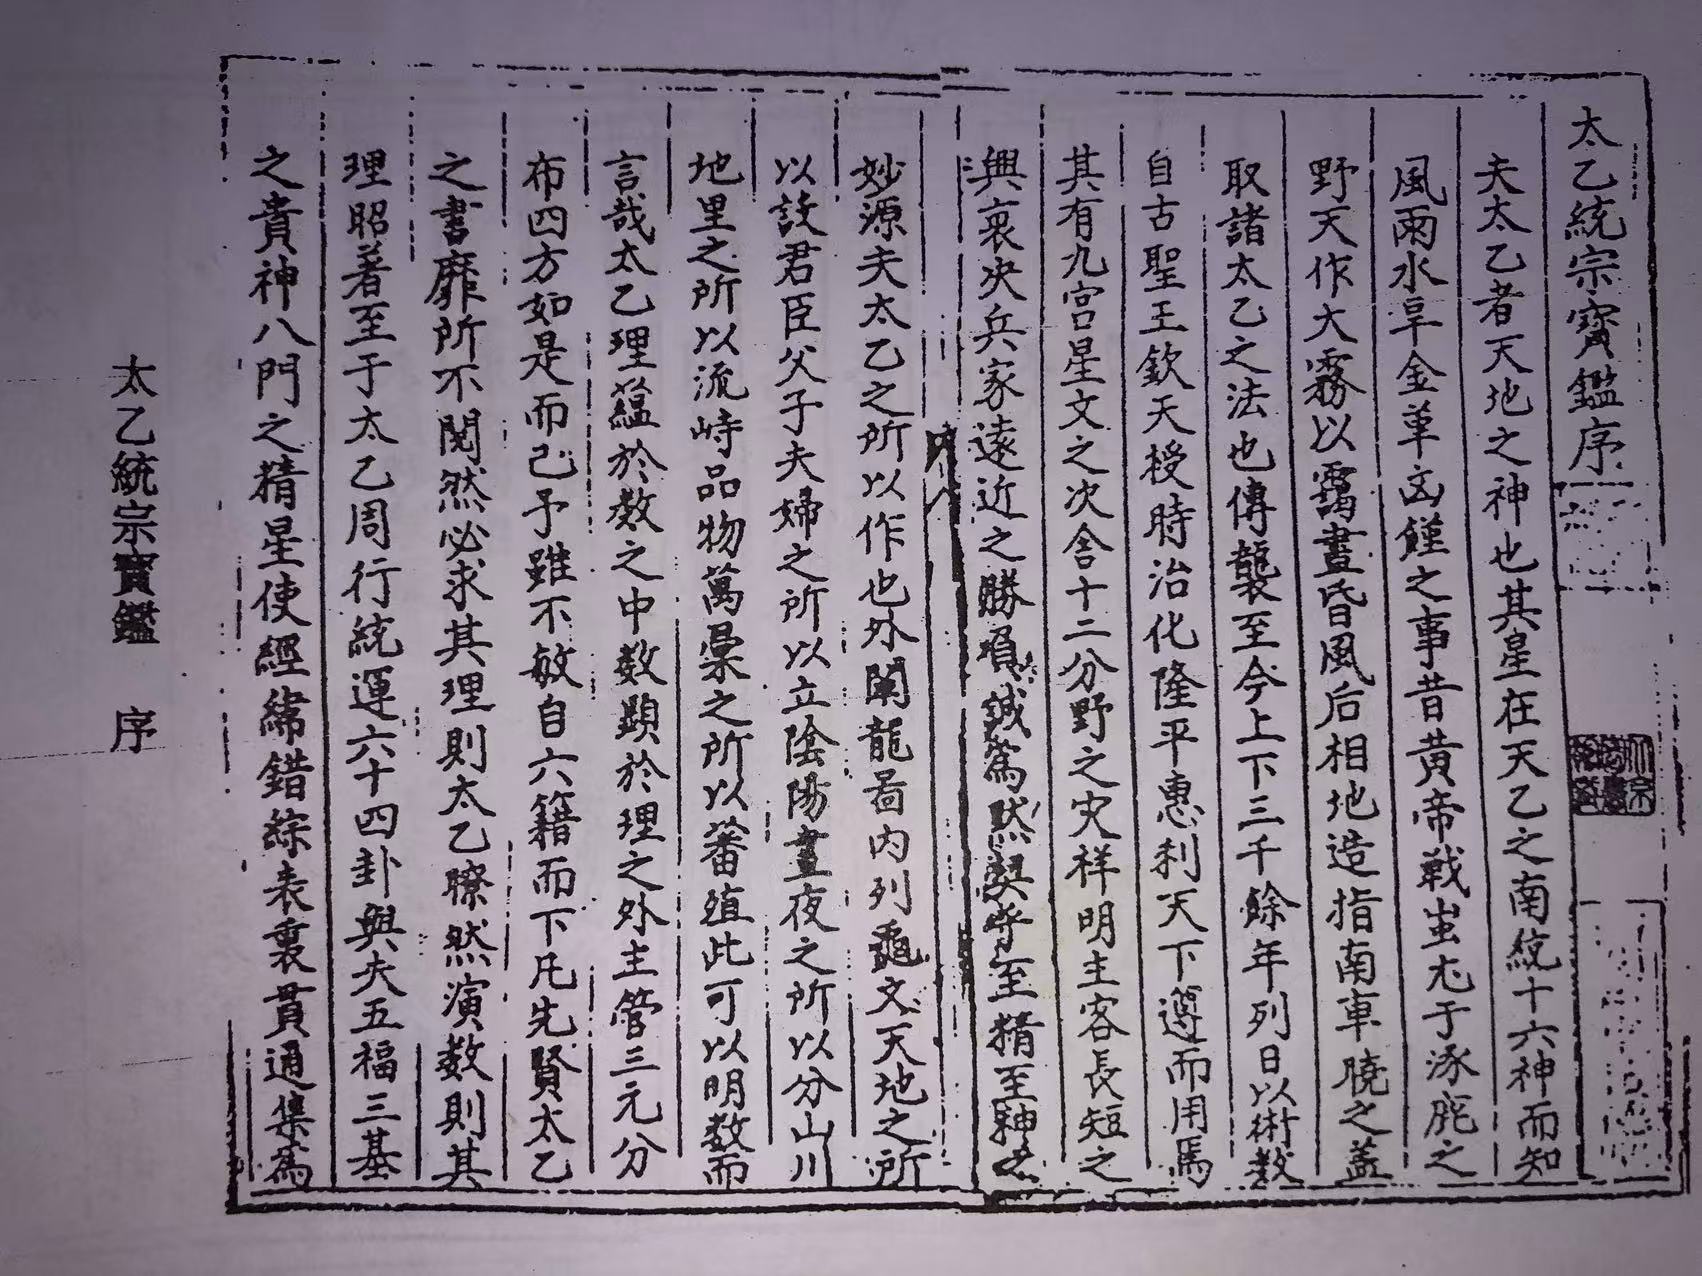 太乙統宗寶鑑序
夫太乙者天地之神也其星在天乙之南統十六神而知
風雨水旱金革凶饉之事昔黃帝戰蚩尤于涿鹿之
野天作大霧以靄晝昏風后相地造指南車曉之蓋
取諸太乙之法也傳襲至今上下三千餘年列日以術数
自古聖王欽天授時治化隆平惠利天下遵而用焉
其有九宮星文之次舍十二分野之灾祥明主客長短之
興衰决兵家遠近之勝負誠爲然契乎至精至神之
妙源夫太乙之所以作也外闡龍啚内列龜文天地之所
以設君臣父子夫婦之所以立陰陽晝夜之所以分山川
地里之所以流峙品物萬彙之所以蕃殖此可以明数而
言哉太乙理蘊於数之中数顯於理之外主管三元分
布四方如是而已予雖不敏自六籍而下凡先賢太乙
之書靡所不閱然必求其理則太乙瞭然演数則其
理昭著至于太乙周行統運六十四卦與夫五福三基
之貴神八門之精星使經緯錯綜表裏貫通集爲
太乙統宗寶鑑 序